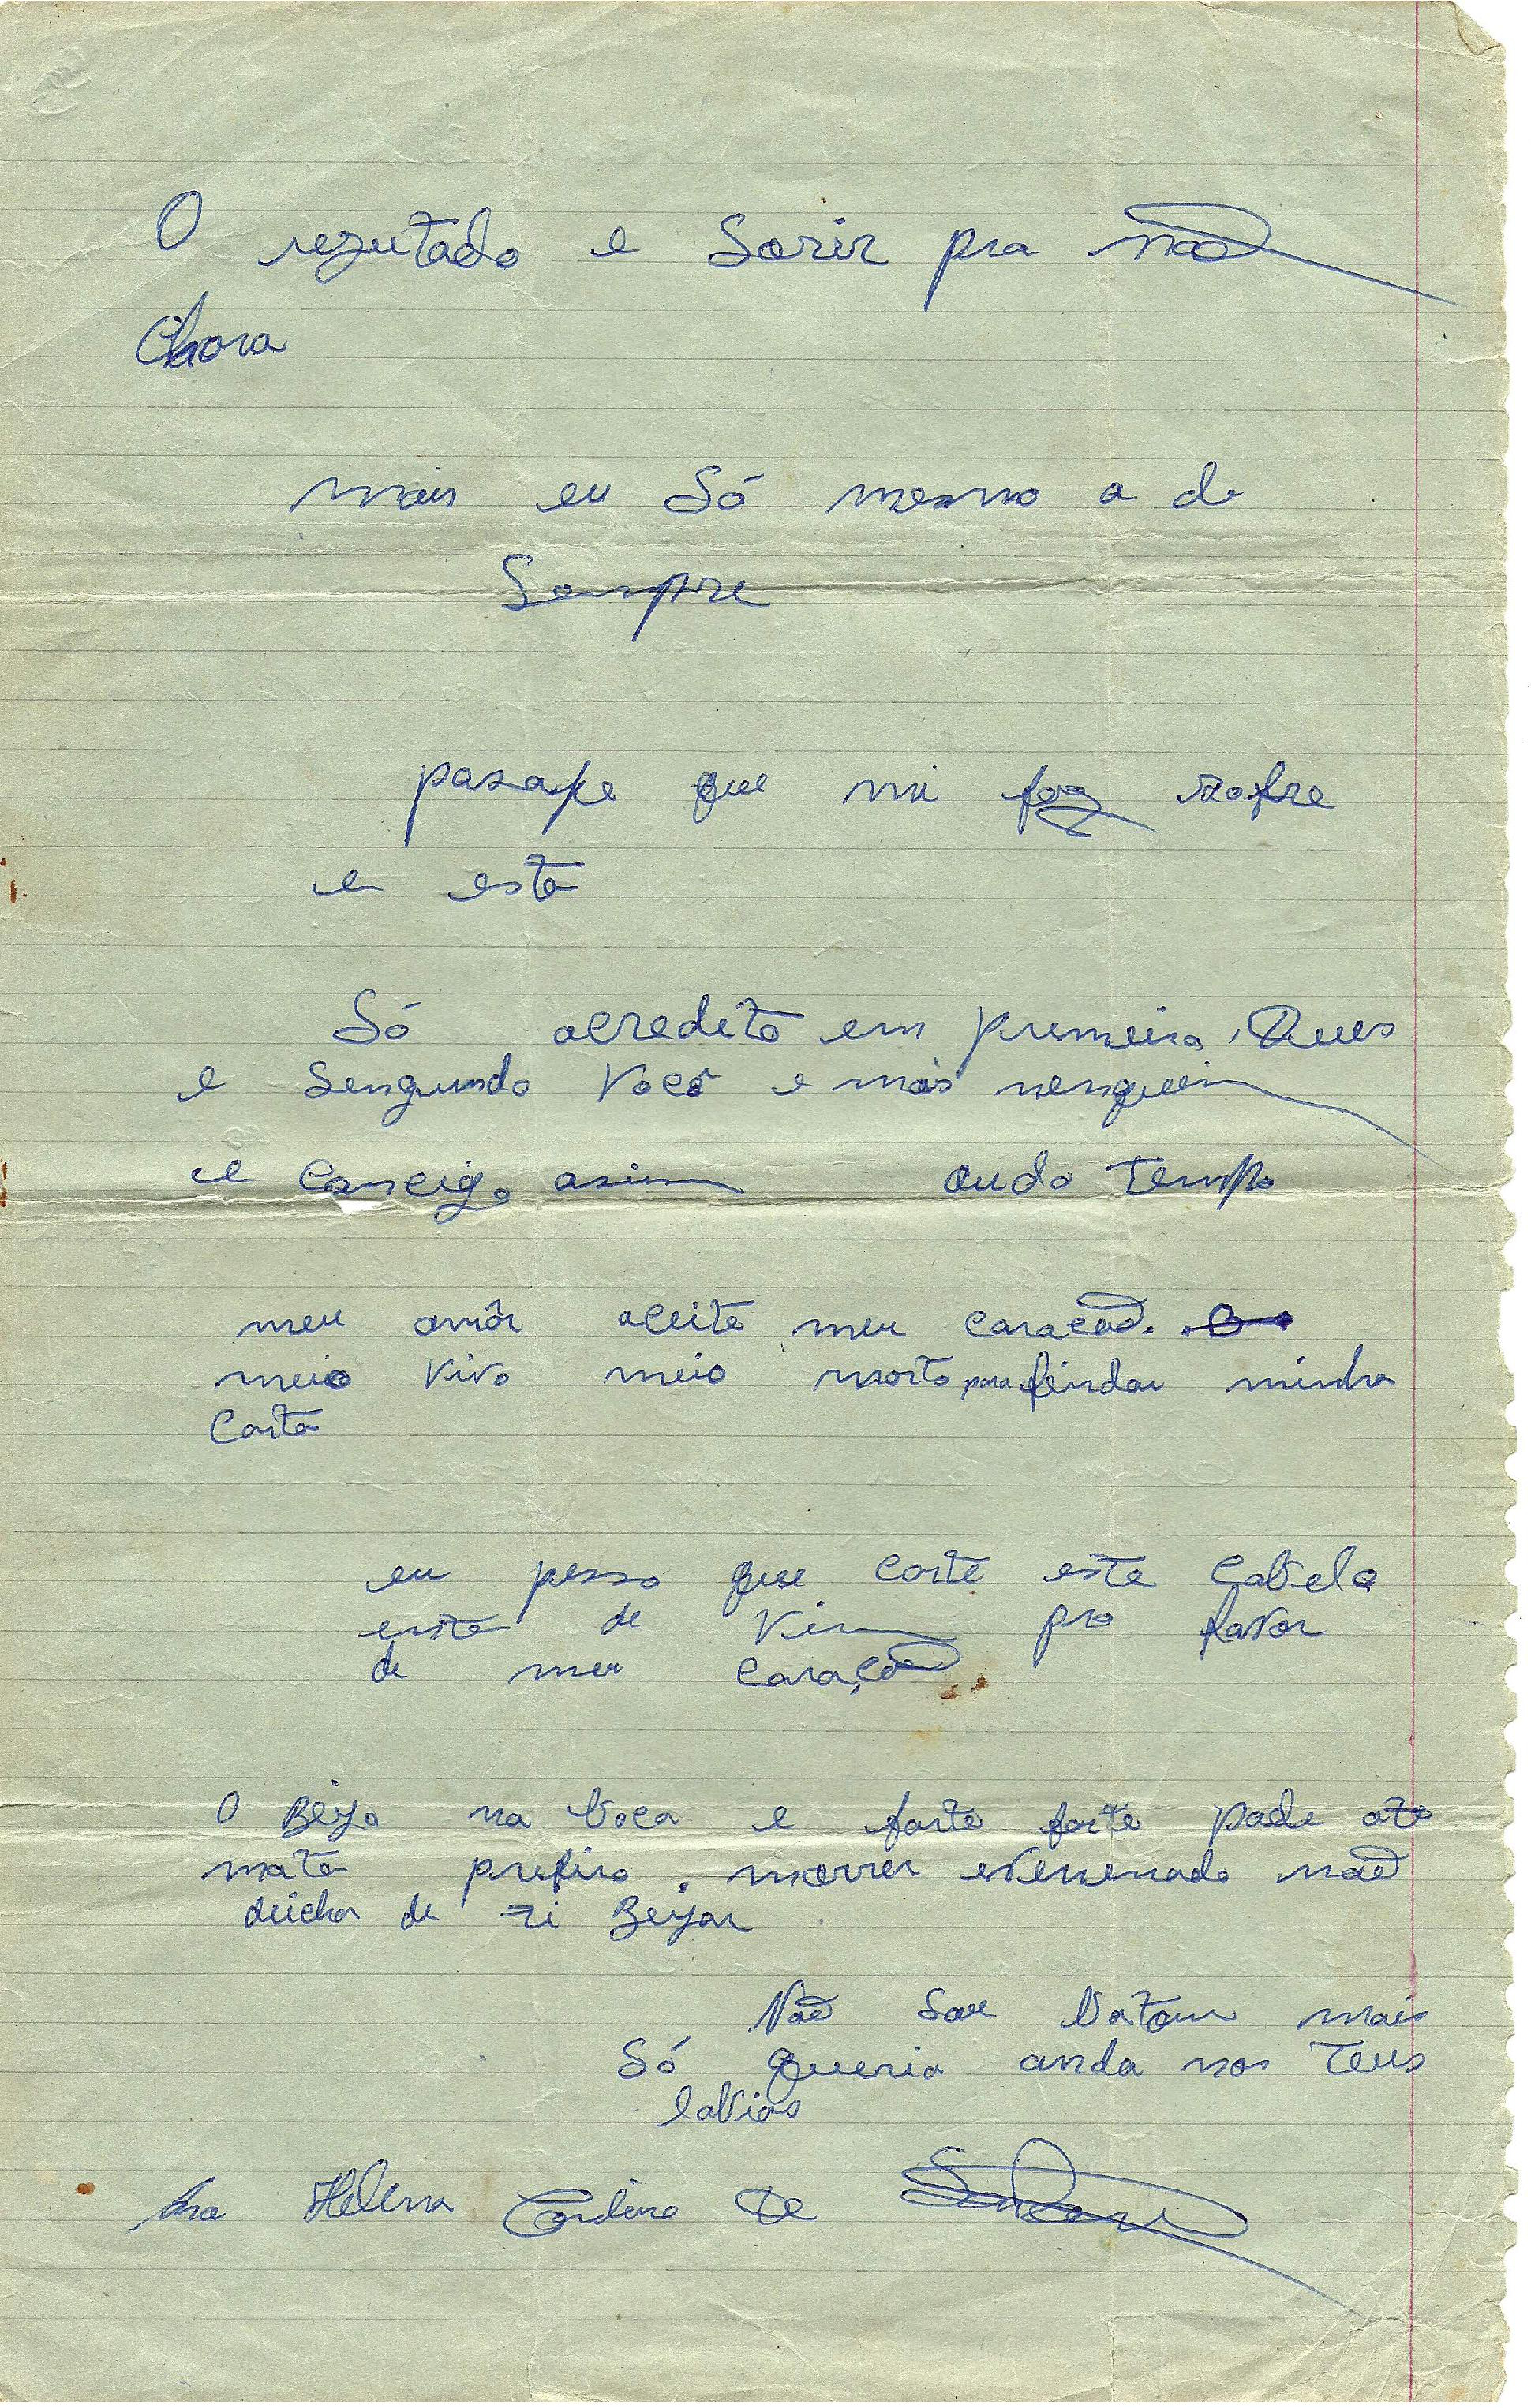 O rezutado e Sorir pra não
Chora
mais eu Só mesmo a de
Sempre
que mi faz sofre
e esta
Só acredito em premeiro Deus
e Sengundo Você e mas nenguem
e Comcigo asim ou do tempo
meu amôr aceite meu coração.
meio vivo meio morto para findar minha
Carta
eu pesso que corte este Cabelo
de vim pro favor
de meu coração
O Beijo na boca e forte forte pode ate
mata prefiro morrer evenenado não
deicha de ti Beijar
Não sou batom mais
Só queria anda nos Teus
labios
Ana Helena Cordeiro de